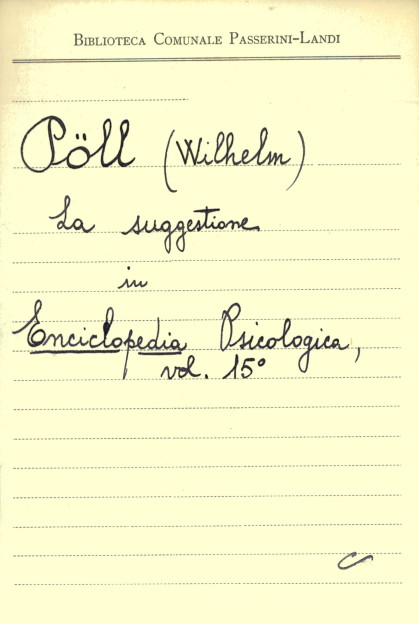 BIBLIOTECA COMUNALE PASSERINI-LANDI
Pöll (Wilhelm)
La suggestione
in
Enciclopedia Psicologica,
vol. 15°